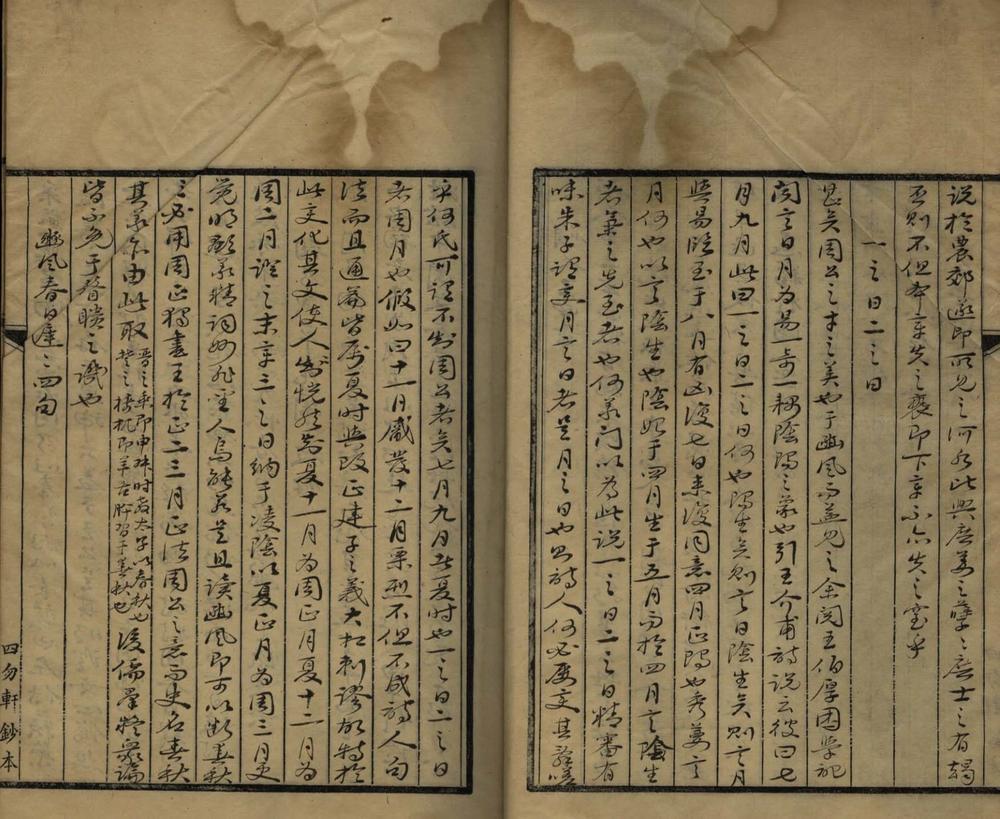 說於農郊遂即所見之河水此與庶姜之孽孽庶士之有朅
否則不但本章失之褻即下章亦失之室乎
一之日二之日
甚矣周公之才之美也于豳風而益見之余閱王伯厚困學紀
聞言日月為易一奇一耦陰陽之象也引王介甫詩說云彼曰七
月九月此曰一之日二之日何也陽生矣則言日陰生矣則言月
與易臨至于八月有凶復七日來復同意四月正陽也秀葽言
月何也以言陰生也陰始于四月生于五月而於四月言陰生
者葽之先至者也何義門以為此說一之日二之日精審有
味朱子謂變月言日者是月之日也與詩人何必屢變其
乎何氏可謂不知周公者矣七月九月者夏時也一之日二之日
者周月也假如曰十一月觱發十二月栗烈不但不成詩人句
法而且通篇皆屬夏時與改正建子之義大相刺謬故特於
此文化其文使人恍然知夏十一月為周正月夏十二月為
周二月證之末章三之日納于凌陰以夏正月為周三月更
覺明顯義精詞妙非聖人烏能若是且讀豳風即可以斷春秋
之必用周正獨書王於正二三月正法周公之意而史名春秋
其義亦由此取晉之乘即申叔時教太子以春秋也楚之檮杌即羊舌肸習于春秋也後儒羣疑衆論
皆不免于眢瞶之譏也
豳風春日遲遲四句
四勿軒鈔本